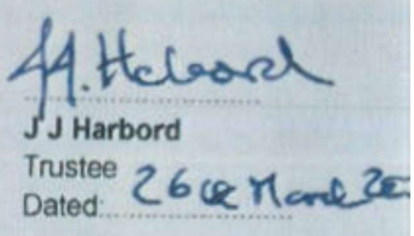 JJ. Harbord
J J Harbord
Trustee
Dated: 26th March 20